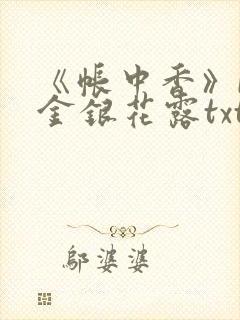 《帐中香》
金银花露txt
邬婆婆